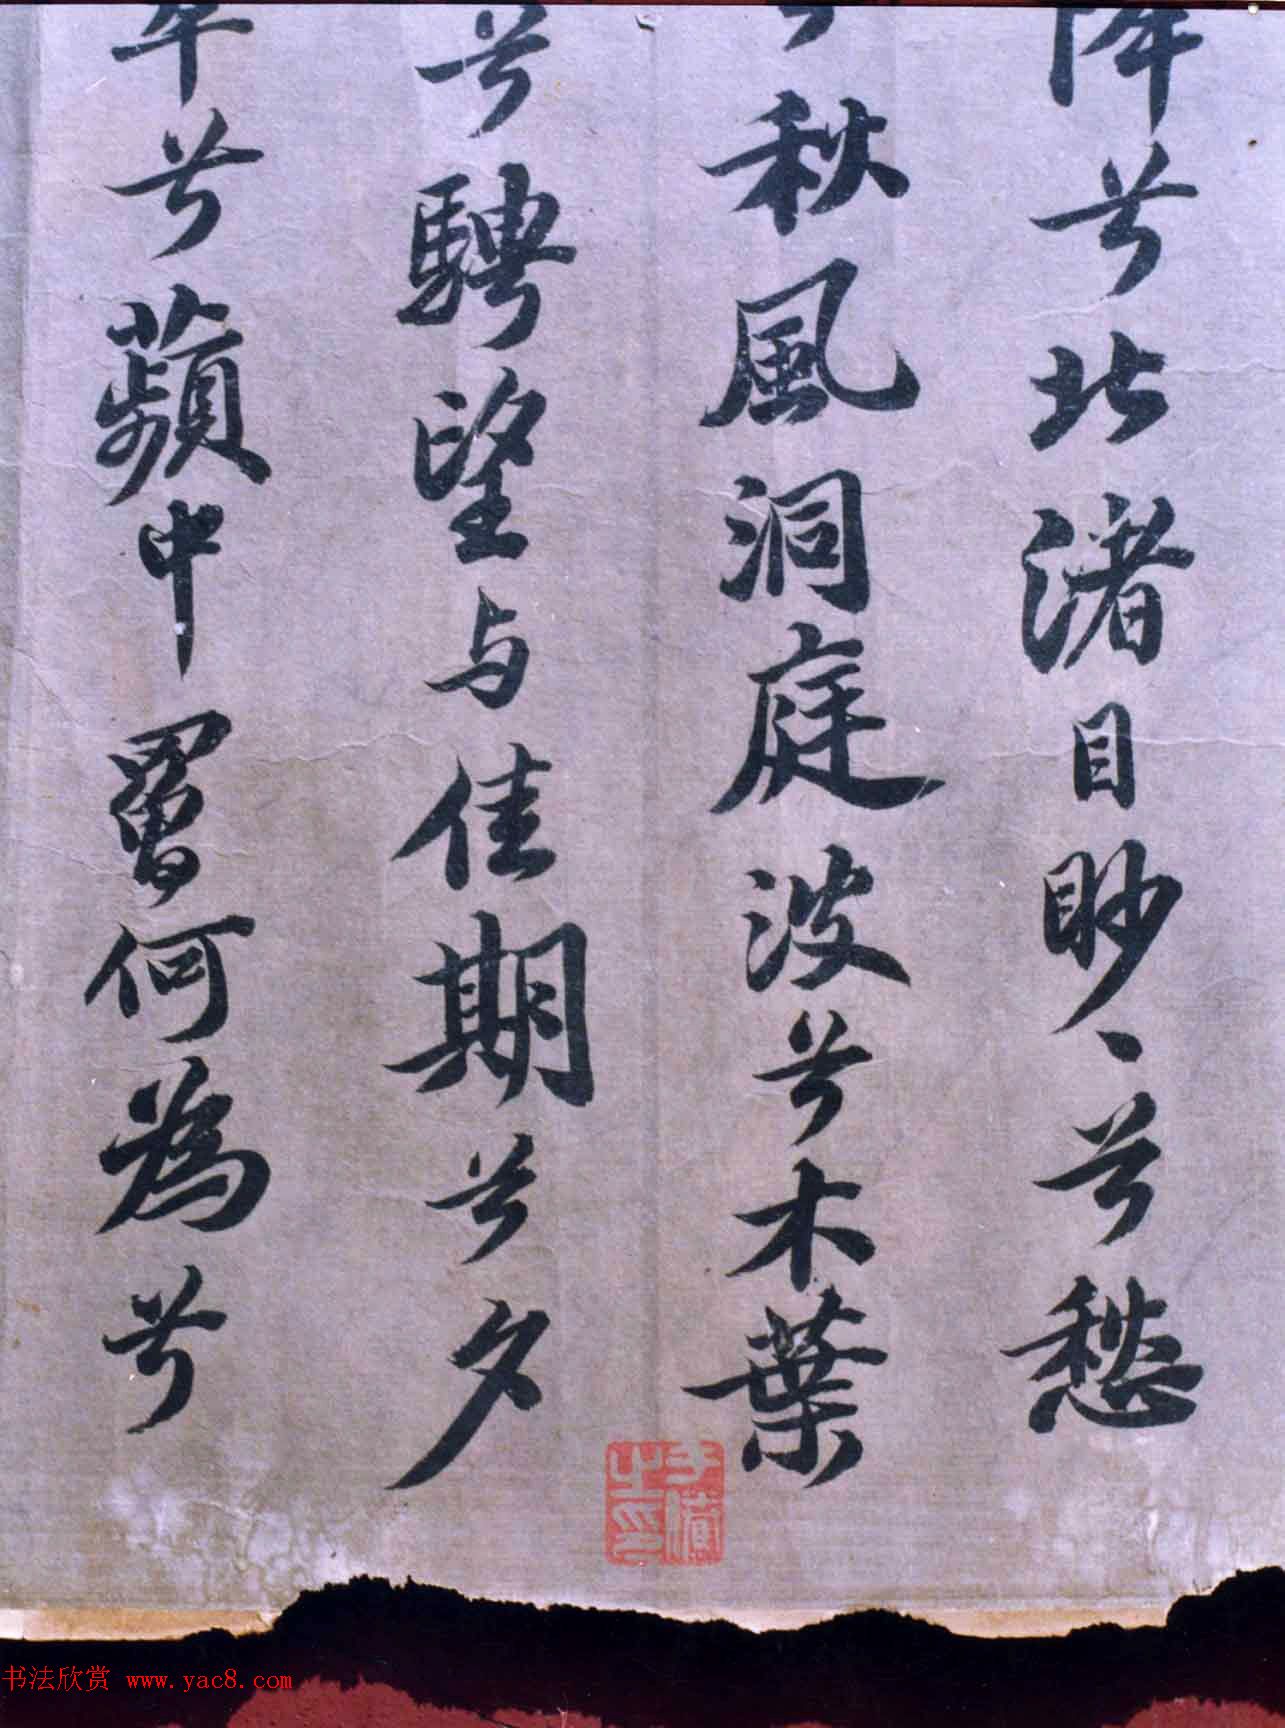 降兮北渚目眇〻兮愁
兮秋風洞庭波兮木葉
兮騁望与佳期兮夕
萃兮蘋中罾何為兮
之印
书法欣赏 www.yac8.com